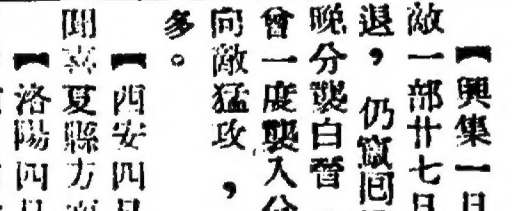 【興集一日
敵一部廿七日
退，仍竄囘
晚分襲白晉
曾一度襲入分
向敵猛攻，
多。
【西安四日
聞喜夏縣方面
【洛陽四日